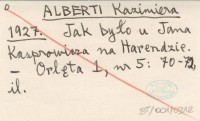 ALBERTI Kazimiera
1927. Jak było u Jana
Kasprowicza na Harendzie.
— Orlęta 1, nr 5: 70-72,
il.